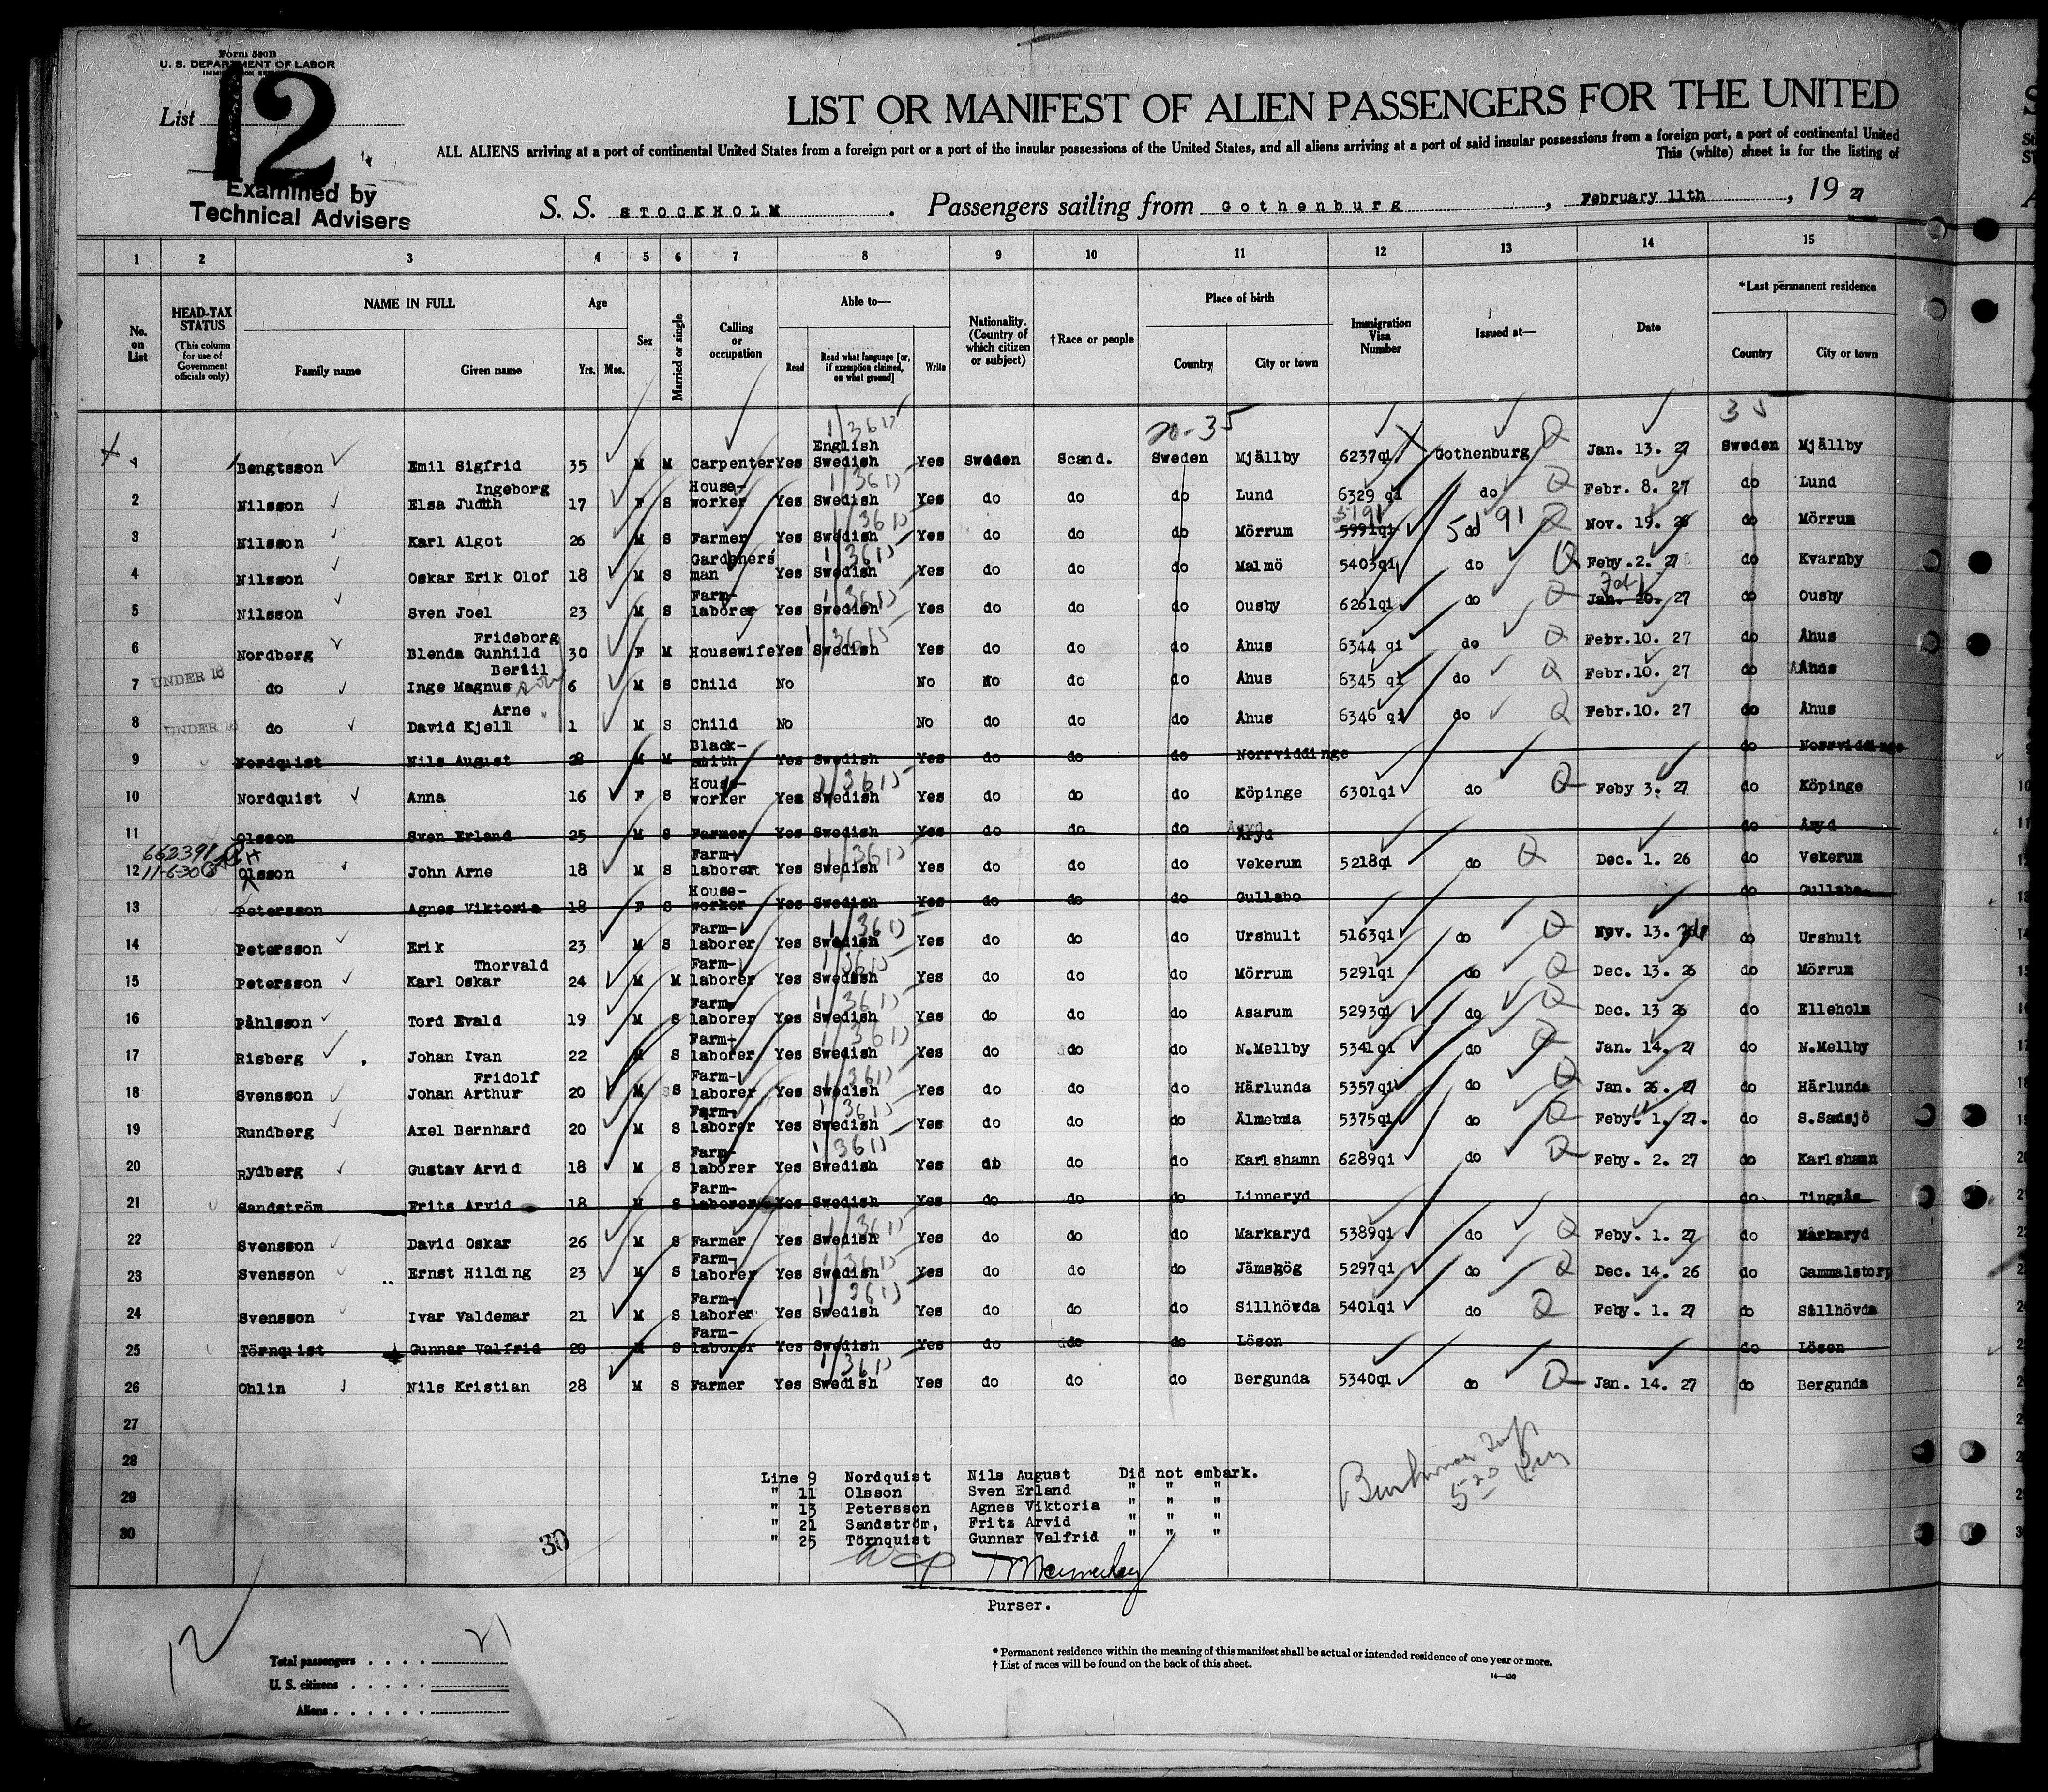 Form 500B
U. S. DEPARTMENT OF LABOR
List 12
Examined by
Technical Advisers
LIST OR MANIFEST OF ALIEN PASSENGERS FOR THE UNITED
ALL ALIENS arriving at a port of continental United States from a foreign port or a port of the insular possessions of the United States, and all aliens arriving at a port of said insular possessions from a foreign port, a port of continental United
This (white) sheet is for the listing of
S. S. STOCKHOLM . Passengers sailing from Gothenburg , February 11th , 19 27
1 2 3 4 5 6 7 8 9 10 11 12 13 14 15
No. on List
HEAD-TAX STATUS (This column for use of Government officials only)
NAME IN FULL Family name Given name
Age Yrs. Mos.
Sex
Married or single
Calling or occupation
Able to— Read Read what language [or, if exemption claimed, on what ground] Write
Nationality. (Country of which citizen or subject)
†Race or people
Place of birth Country City or town
Immigration Visa Number
Issued at—
Date
*Last permanent residence Country City or town
1 Bengtsson Emil Sigfrid 35 M M Carpenter Yes English Swedish Yes Sweden Scand. Sweden Mjällby 6237qi Gothenburg Jan. 13. 27 Sweden Mjällby
2 Nilsson Elsa Judith Ingeborg 17 F S House-worker Yes Swedish Yes do do do Lund 6329 qi do Febr. 8. 27 do Lund
3 Nilsson Karl Algot 26 M S Farmer Yes Swedish Yes do do do Mörrum 5991qi 5191 do 5191 Nov. 19. 26 do Mörrum
4 Nilsson Oskar Erik Olof 18 M S Gardeners' man Yes Swedish Yes do do do Malmö 5403qi do Feby. 2. 27 do Kvarnby
5 Nilsson Sven Joel 23 M S Farm-laborer Yes Swedish Yes do do do Ousby 6261qi do Jan. 20. 27 do Ousby
6 Nordberg Blenda Gunhild Frideborg 30 F M Housewife Yes Swedish Yes do do do Åhus 6344 qi do Febr. 10. 27 do Åhus
7 UNDER 16 do Inge Magnus Bertil 6 M S Child No No do do do Åhus 6345 qi do Febr. 10. 27 do Åhus
8 UNDER 16 do David Kjell Arne 1 M S Child No No do do do Åhus 6346 qi do Febr. 10. 27 do Åhus
9 Nordquist Nils August 28 M M Black-smith Yes Swedish Yes do do do Norrviddinge do Norrviddinge
10 Nordquist Anna 16 F S House-worker Yes Swedish Yes do do do Köpinge 6301qi do Feby 3. 27 do Köpinge
11 Olsson Sven Erland 25 M S Farmer Yes Swedish Yes do do do Aryd do Aryd
662391
11-6-30
12 Olsson John Arne 18 M S Farm-laborer Yes Swedish Yes do do do Vekerum 5218qi do Dec. 1. 26 do Vekerum
13 Petersson Agnes Viktoria 18 F S House-worker Yes Swedish Yes do do do Gullabo do Gullabo
14 Petersson Erik 23 M S Farm-laborer Yes Swedish Yes do do do Urshult 5163qi do Nov. 13. 26 do Urshult
15 Petersson Karl Oskar Thorvald 24 M M Farm-laborer Yes Swedish Yes do do do Mörrum 5291qi do Dec. 13. 26 do Mörrum
16 Påhlsson Tord Evald 19 M S Farm-laborer Yes Swedish Yes do do do Asarum 5293qi do Dec. 13 26 do Elleholm
17 Risberg Johan Ivan 22 M S Farm-laborer Yes Swedish Yes do do do N.Mellby 5341qi do Jan. 14. 27 do N.Mellby
18 Svensson Johan Arthur Fridolf 20 M S Farm-laborer Yes Swedish Yes do do do Härlunda 5357qi do Jan. 26. 27 do Härlunda
19 Rundberg Axel Bernhard 20 M S Farm-laborer Yes Swedish Yes do do do 5375qi do Feby. 1. 27. do S.Sandsjö
20 Rydberg Gustav Arvid 18 M S Farm-laborer Yes Swedish Yes do do do Karlshamn 6289qi do Feby. 2. 27 do Karlshamn
21 Sandström Frits Arvid 18 M S Farm-laborer Yes Swedish Yes do do do Linneryd do Tingsås
22 Svensson David Oskar 26 M S Farmer Yes Swedish Yes do do do Markaryd 5389qi do Feby. 1. 27 do Markaryd
23 Svensson Ernst Hilding 23 M S Farm-laborer Yes Swedish Yes do do do Jämshög 5297qi do Dec. 14. 26 do Gammalstorp
24 Svensson Ivar Valdemar 21 M S Farm-laborer Yes Swedish Yes do do do Sillhövda 5401qi do Feby. 1. 27 do Sillhövda
25 Törnquist Gunnar Valfrid 20 M S Farm-laborer Yes Swedish Yes do do do Lösen do Lösen
26 Ohlin Nils Kristian 28 M S Farmer Yes Swedish Yes do do do Bergunda 5340qi do Jan. 14. 27 do Bergunda
27
28
29
30
Line 9 Nordquist Nils August Did not embark.
" 11 Olsson Sven Erland " " "
" 13 Petersson Agnes Viktoria " " "
" 21 Sandström, Fritz Arvid " " "
" 25 Törnquist Gunnar Valfrid " " "
30
Purser.
12
Total passengers . . . . 21
U. S. citizens . . . . .
Aliens . . . . . .
* Permanent residence within the meaning of this manifest shall be actual or intended residence of one year or more.
† List of races will be found on the back of this sheet.
14—430